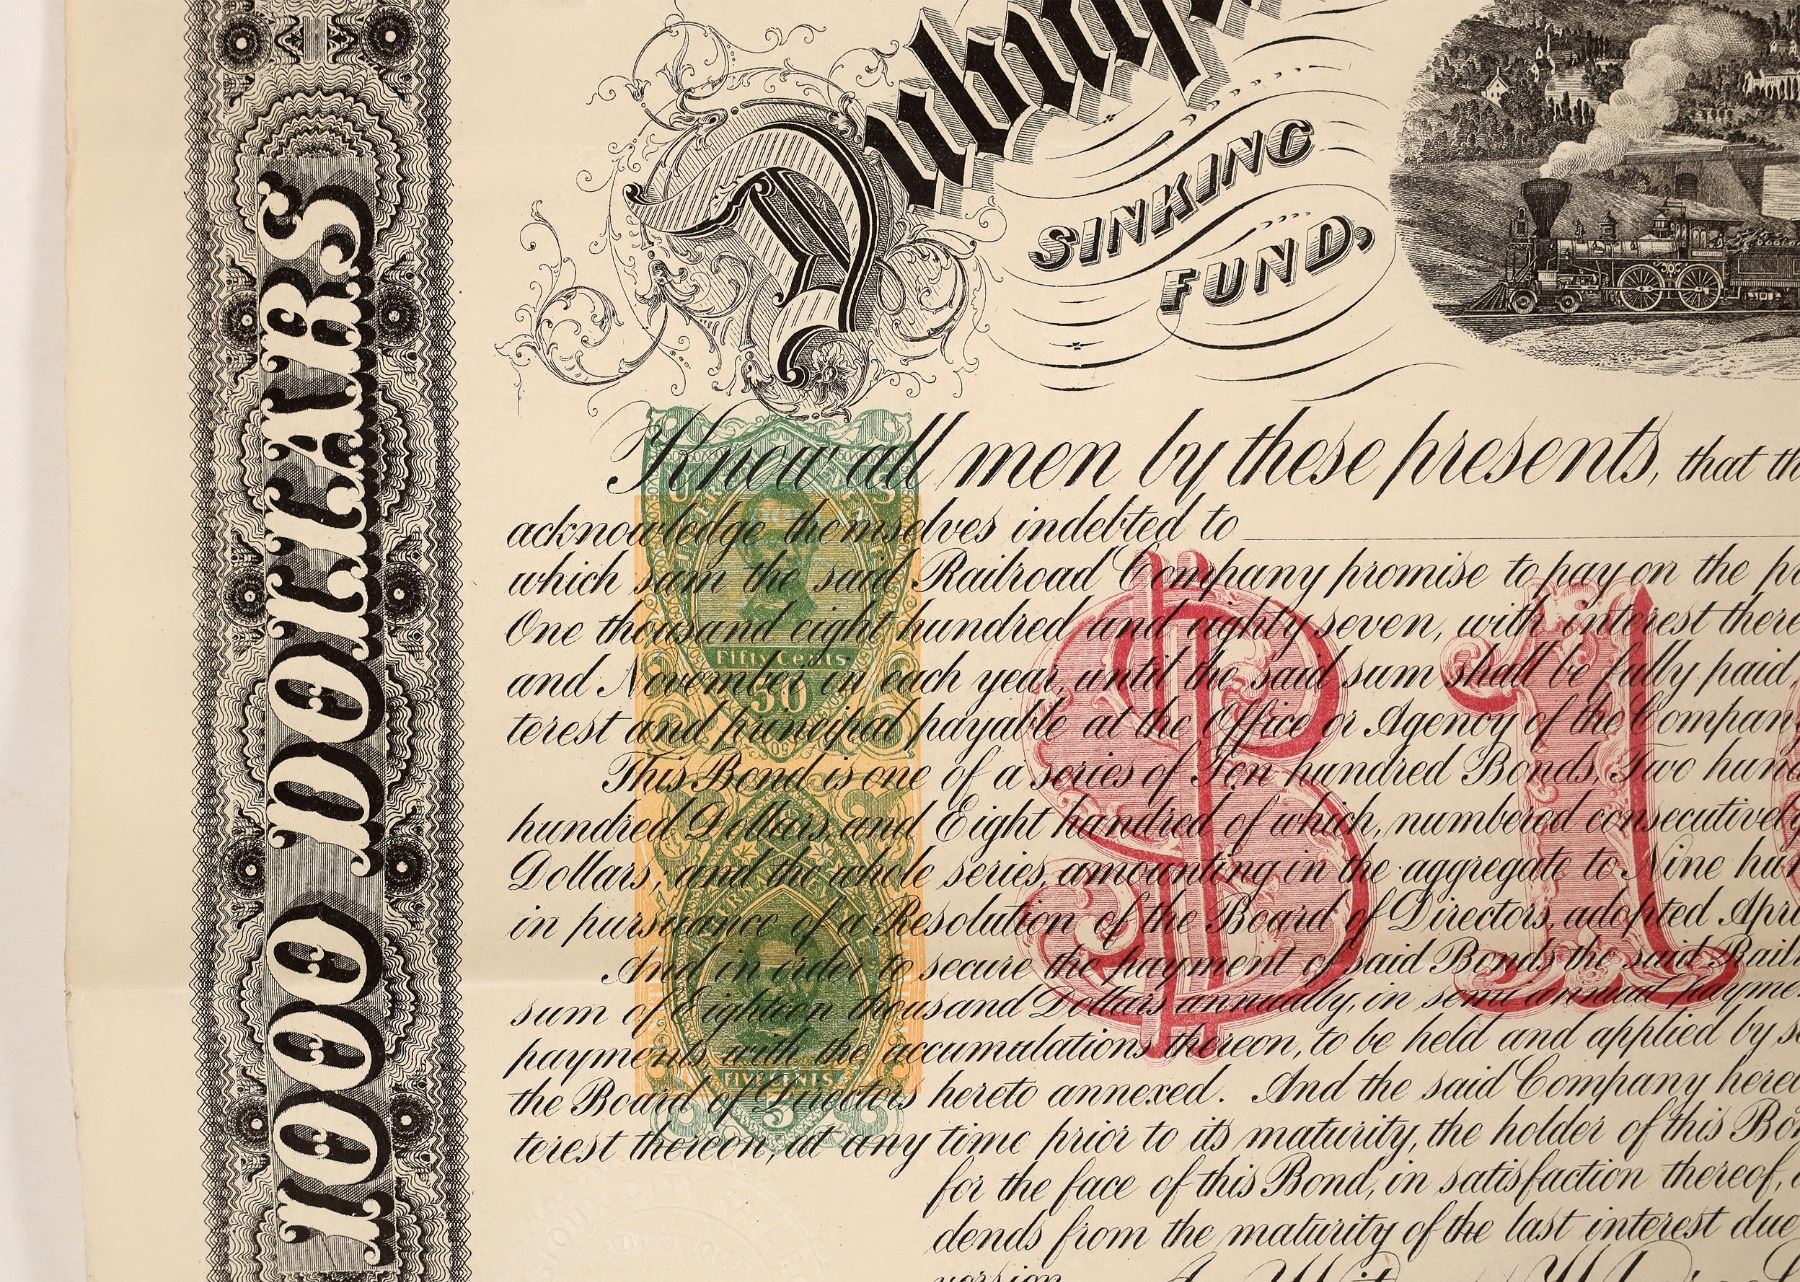 1000 DOLLARS
SINKING
FUND,
Know all men by these presents, that
acknowledge themselves indebted to
which sum the said Railroad Company promise to pay on the
One thousand eight hundred and eighty seven, with interest
and November in each year, until the said sum shall be fully paid,
terest and principal payable at the Office or Agency of the Company
This Bond is one of a series of Ten hundred Bonds, Two
hundred Dollars, and Eight hundred of which, numbered consecutively
Dollars, and the whole series, amounting in the aggregate to Nine
in pursuance of a Resolution of the Board of Directors, adopted
And in order to secure the payment of said Bonds the said
sum of Eighteen thousand Dollars annually, in semi annual
payments, with the accumulations thereon, to be held and applied by
the Board of Directors hereto annexed. And the said Company
terest thereon, at any time prior to its maturity, the holder of this
for the face of this Bond, in satisfaction thereof,
dends from the maturity of the last interest due
Fifty Cents
50
FIVE CENTS
5
$1